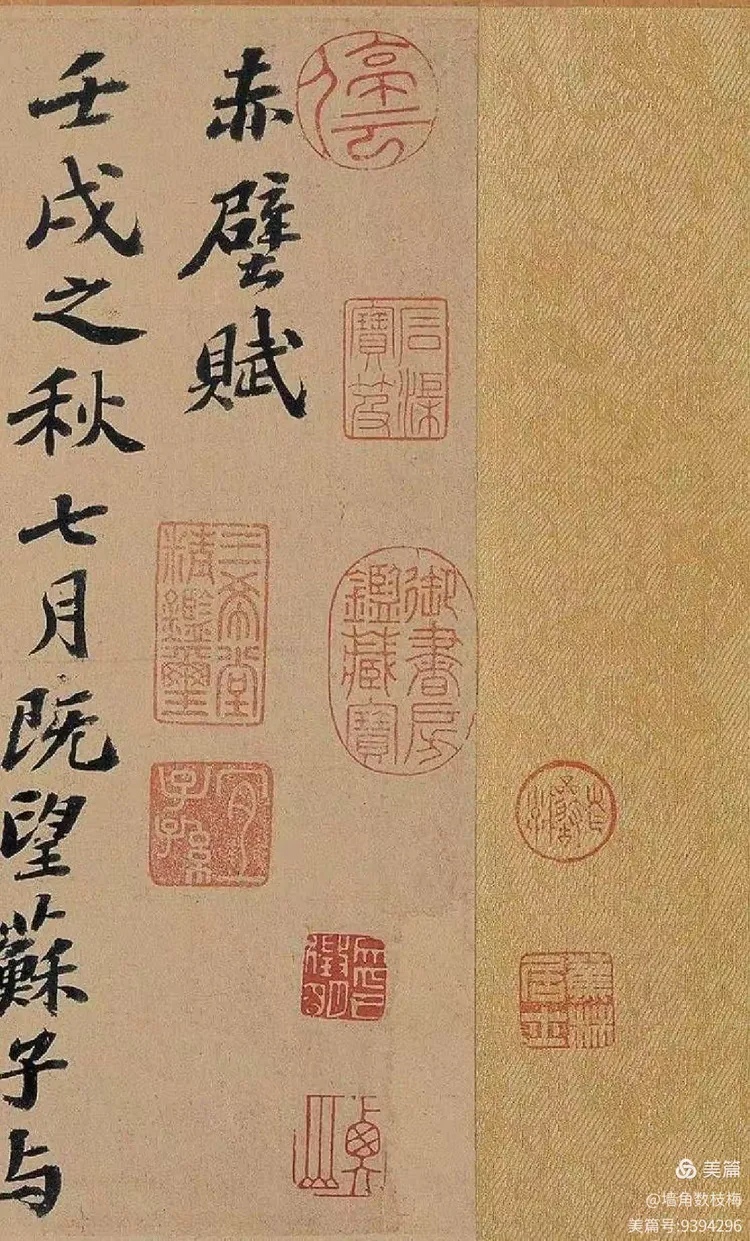 蕉林居士
停云
石渠寶笈
御書房鑑藏寶
赤壁賦
三希堂精鑑璽
宜子孫
壬戌之秋七月既望蘇子与
美篇
@墙角数枝梅
美篇号:9394296